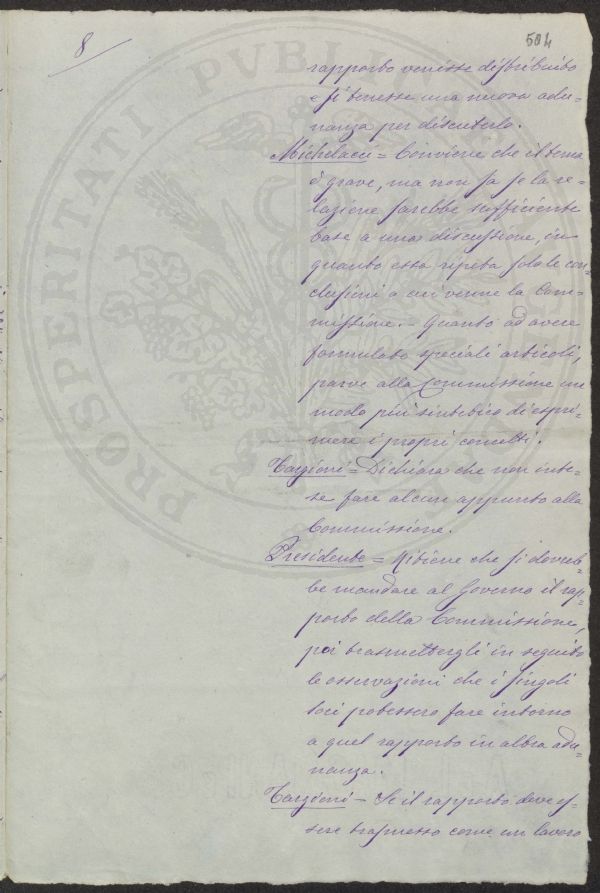 8
504
rapporto venisse distribuito
e si tenesse una nuova adu-
nanza per discuterlo.
Michelacci = Conviene che il tema
è grave, ma non sa se la re-
lazione sarebbe sufficiente
base a una discussione, in
quanto essa ripeta solo le con-
clusioni a cui venne la Com-
missione. - Quanto ad avere
formulato speciali articoli,
parve alla Commissione un
modo più sintetico di espri-
mere i propri concetti.
Targioni = Dichiara che non inte-
se fare alcun appunto alla
Commissione.
Presidente = Ritiene che si dovreb-
be mandare al Governo il rap-
porto della Commissione,
poi trasmettergli in seguito
le osservazioni che i singoli
soci potessero fare intorno
a quel rapporto in altra adu-
nanza.
Targioni - Se il rapporto deve es-
sere trasmesso come un lavoro
PROSPERITATI PVBLICAE